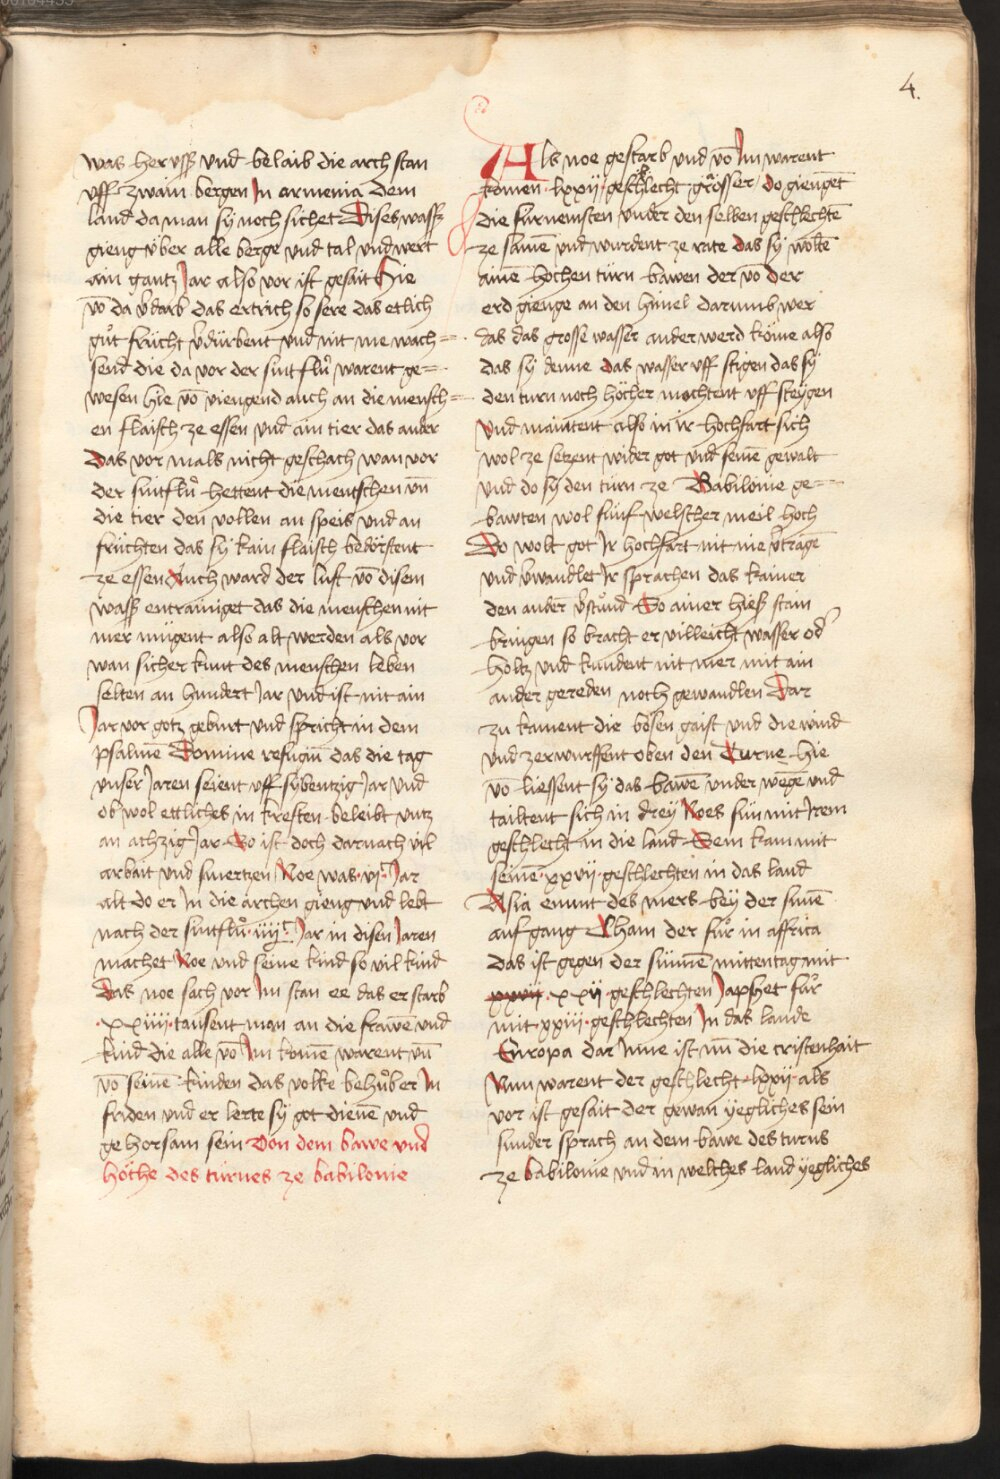 4.
was her uſſ und belaib die arch stan
uff zwain bergen In armenia dem
land da man sy noch sichet Dises wasſ
gieng über alle berge und tal und wert
ain gantz Jar also vor ist gesait Hie
vō da v̄darb das ertrich so sere das etlich
gůt frücht v̄dürbent und nit me wach=
send die da vor der sintflů warent ge=
wesen hie vō viengend auch an die mensch=
en flaisch ze essen und ain tier das ander
Das vor mals nicht geschach wan vor
der sintflů hettent die mentschen vn̄
die tier den vollen an speis und an
früchten das sy kain flaisch bedorftent
ze essen Auch ward der luft vō disem
wasſ entrainiget das die menschen nit
mer mügent also alt werden als vor
wan sicher kunt des menschen leben
selten an hundert Jar und ist nit ain
Jar vor gotz geburt und spricht in dem
psalmē Domine refugiū das die tag
unser Jaren seient uff sybentzig Jar und
ob wol ettliches in kreften beleibt untz
an achzig Jar So ist doch darnach vil
arbait und smertzen Noe was ·vi·ͨ Jar
alt do er In die archen gieng und lebt
nach der sintflů ·iiijͨ Jar in disen Jaren
machet Noe und seine kind so vil kind
Das noe sach vor Im stan ee das er starb
·xxiiii· tausent man an die frawē und
kind die alle vō Im komē warent vn̄
vō seinē kinden das volke behůber In
friden und er lerte sy got dienē und
gehorsam sein Von dem bawe und
höche des turnes ze babilonie
Als noe gestarb und vō Im warent
komen ·lxxij· geschlecht grösser do giengēt
die furnemsten under den selben geschlechtē
ze samē und wurdent ze rate das sy woltē
ainē hochen turn bawen der vō der
erd gienge an den himel darumb wer
das das grosse wasser anderwerd köme also
das sy denne das wasser uff stigen das sy
den turn noch höcher mochtent uff steygen
Und maintent also in ir hochfart sich
wol ze setzent wider got und seinē gewalt
und do sy den turn ze Babilonie ge=
bawten wol fünf welscher meil hoch
Do wolt got Ir hochfart nit me v̄tragē
und v̄wandlet Ir sprachen das kainer
den andern v̄stůnd So ainer hieß stain
bringen so bracht er villeicht wasser od
holtz und kundent nit mer mit ain
ander gereden noch gewandlen Dar
zu kament die bösen gaist und die wind
und zerwurffent oben den Turne hie
vō liessent sy das bawē under wegē und
tailtent sich in drey Noes sün mit Irem
geschlecht in die land Sem kam mit
seinē ·xxvii· geschlechten in das land
Asia ennnt des mers bey der sunē
aufgang Cham der fůr in affrica
das ist gegen der sunnē mittentag mit
xxvii ·xxij· geschlechten Japhet fůr
mit ·xxiii· geschlechten In das lande
Europa dar Inne ist nū die cristenhait
Nun warent der geschlecht ·lxxij· als
vor ist gesait der gewan yegliches sein
sunder sprach an dem bawe des turns
ze babilonie und in welches land yegliches